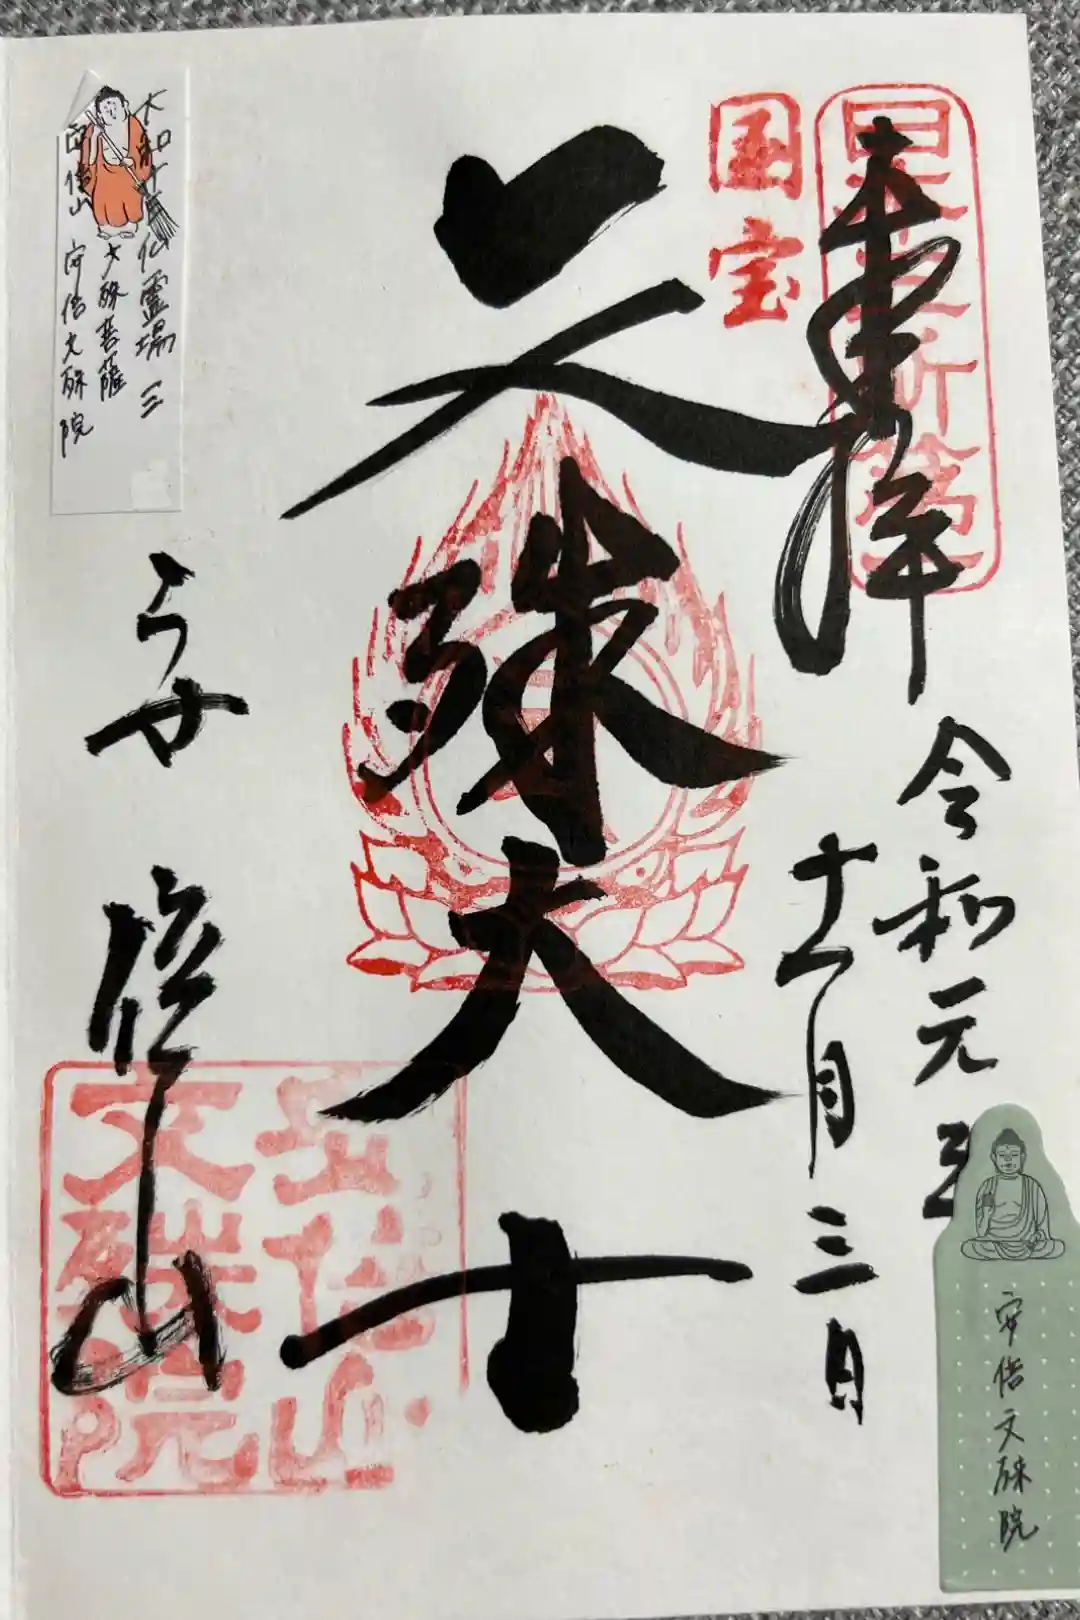 奉拝
令和元年
十一月三日
国宝
文殊大士
安倍山
安倍山
文殊院
大和十三仏霊場 三
文殊菩薩
安倍山 安倍文殊院
安倍文殊院